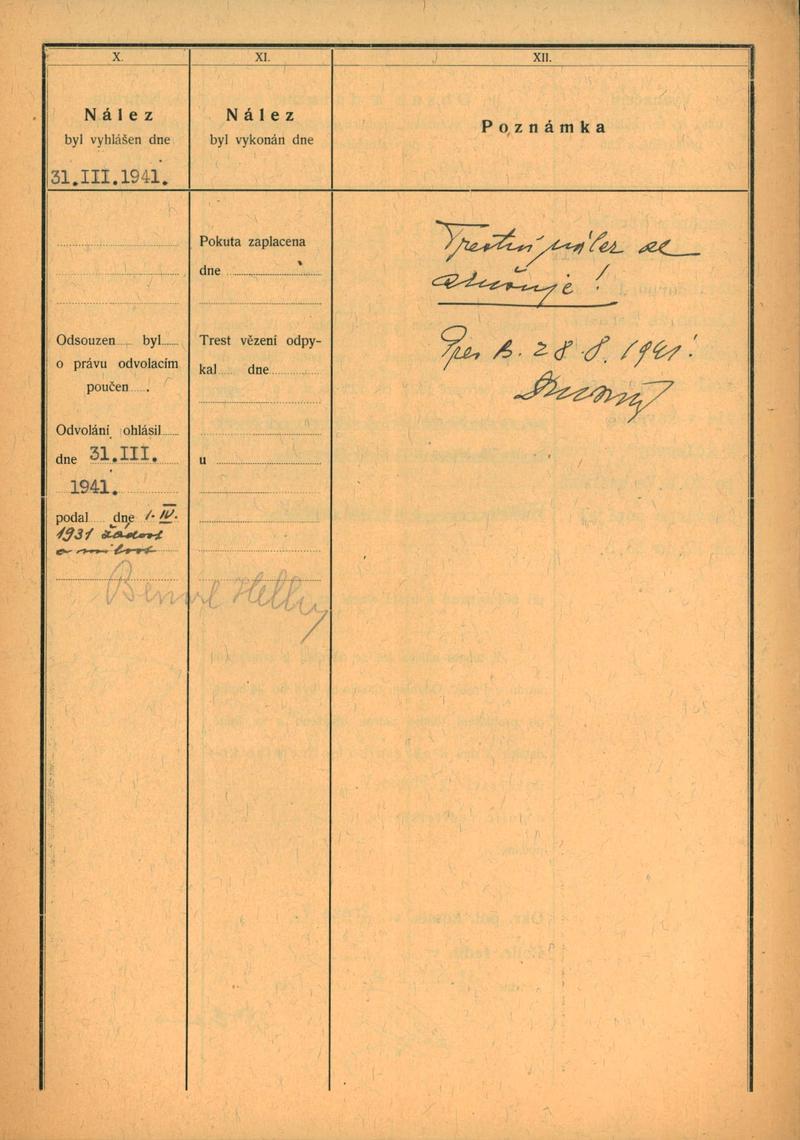 X.
Nález
byl vyhlášen dne
31.III.1941.
Odsouzen byl
o právu odvolacím
poučen .
Odvolání ohlásil
dne 31.III.
1941.
podal dne 1. IV.
1931 žádost
o milost
XI.
Nález
byl vykonán dne
Pokuta zaplacena
dne
Trest vězení odpy-
kal dne
u
XII.
Poznámka
Trestní nález se
zrušuje !
B. 28.8. 1941.